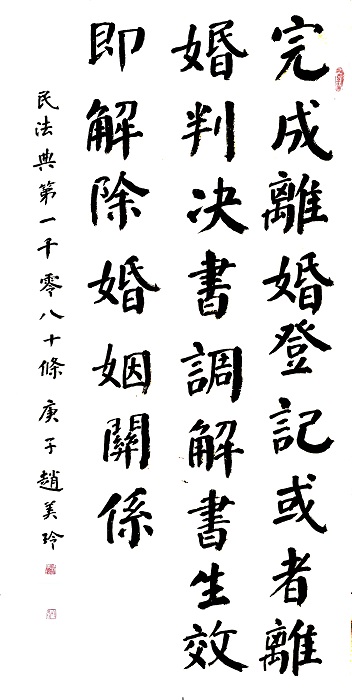 完成離婚登記或者離
婚判决書調解書生效
即解除婚姻關係
民法典第一千零八十條庚子趙美玲